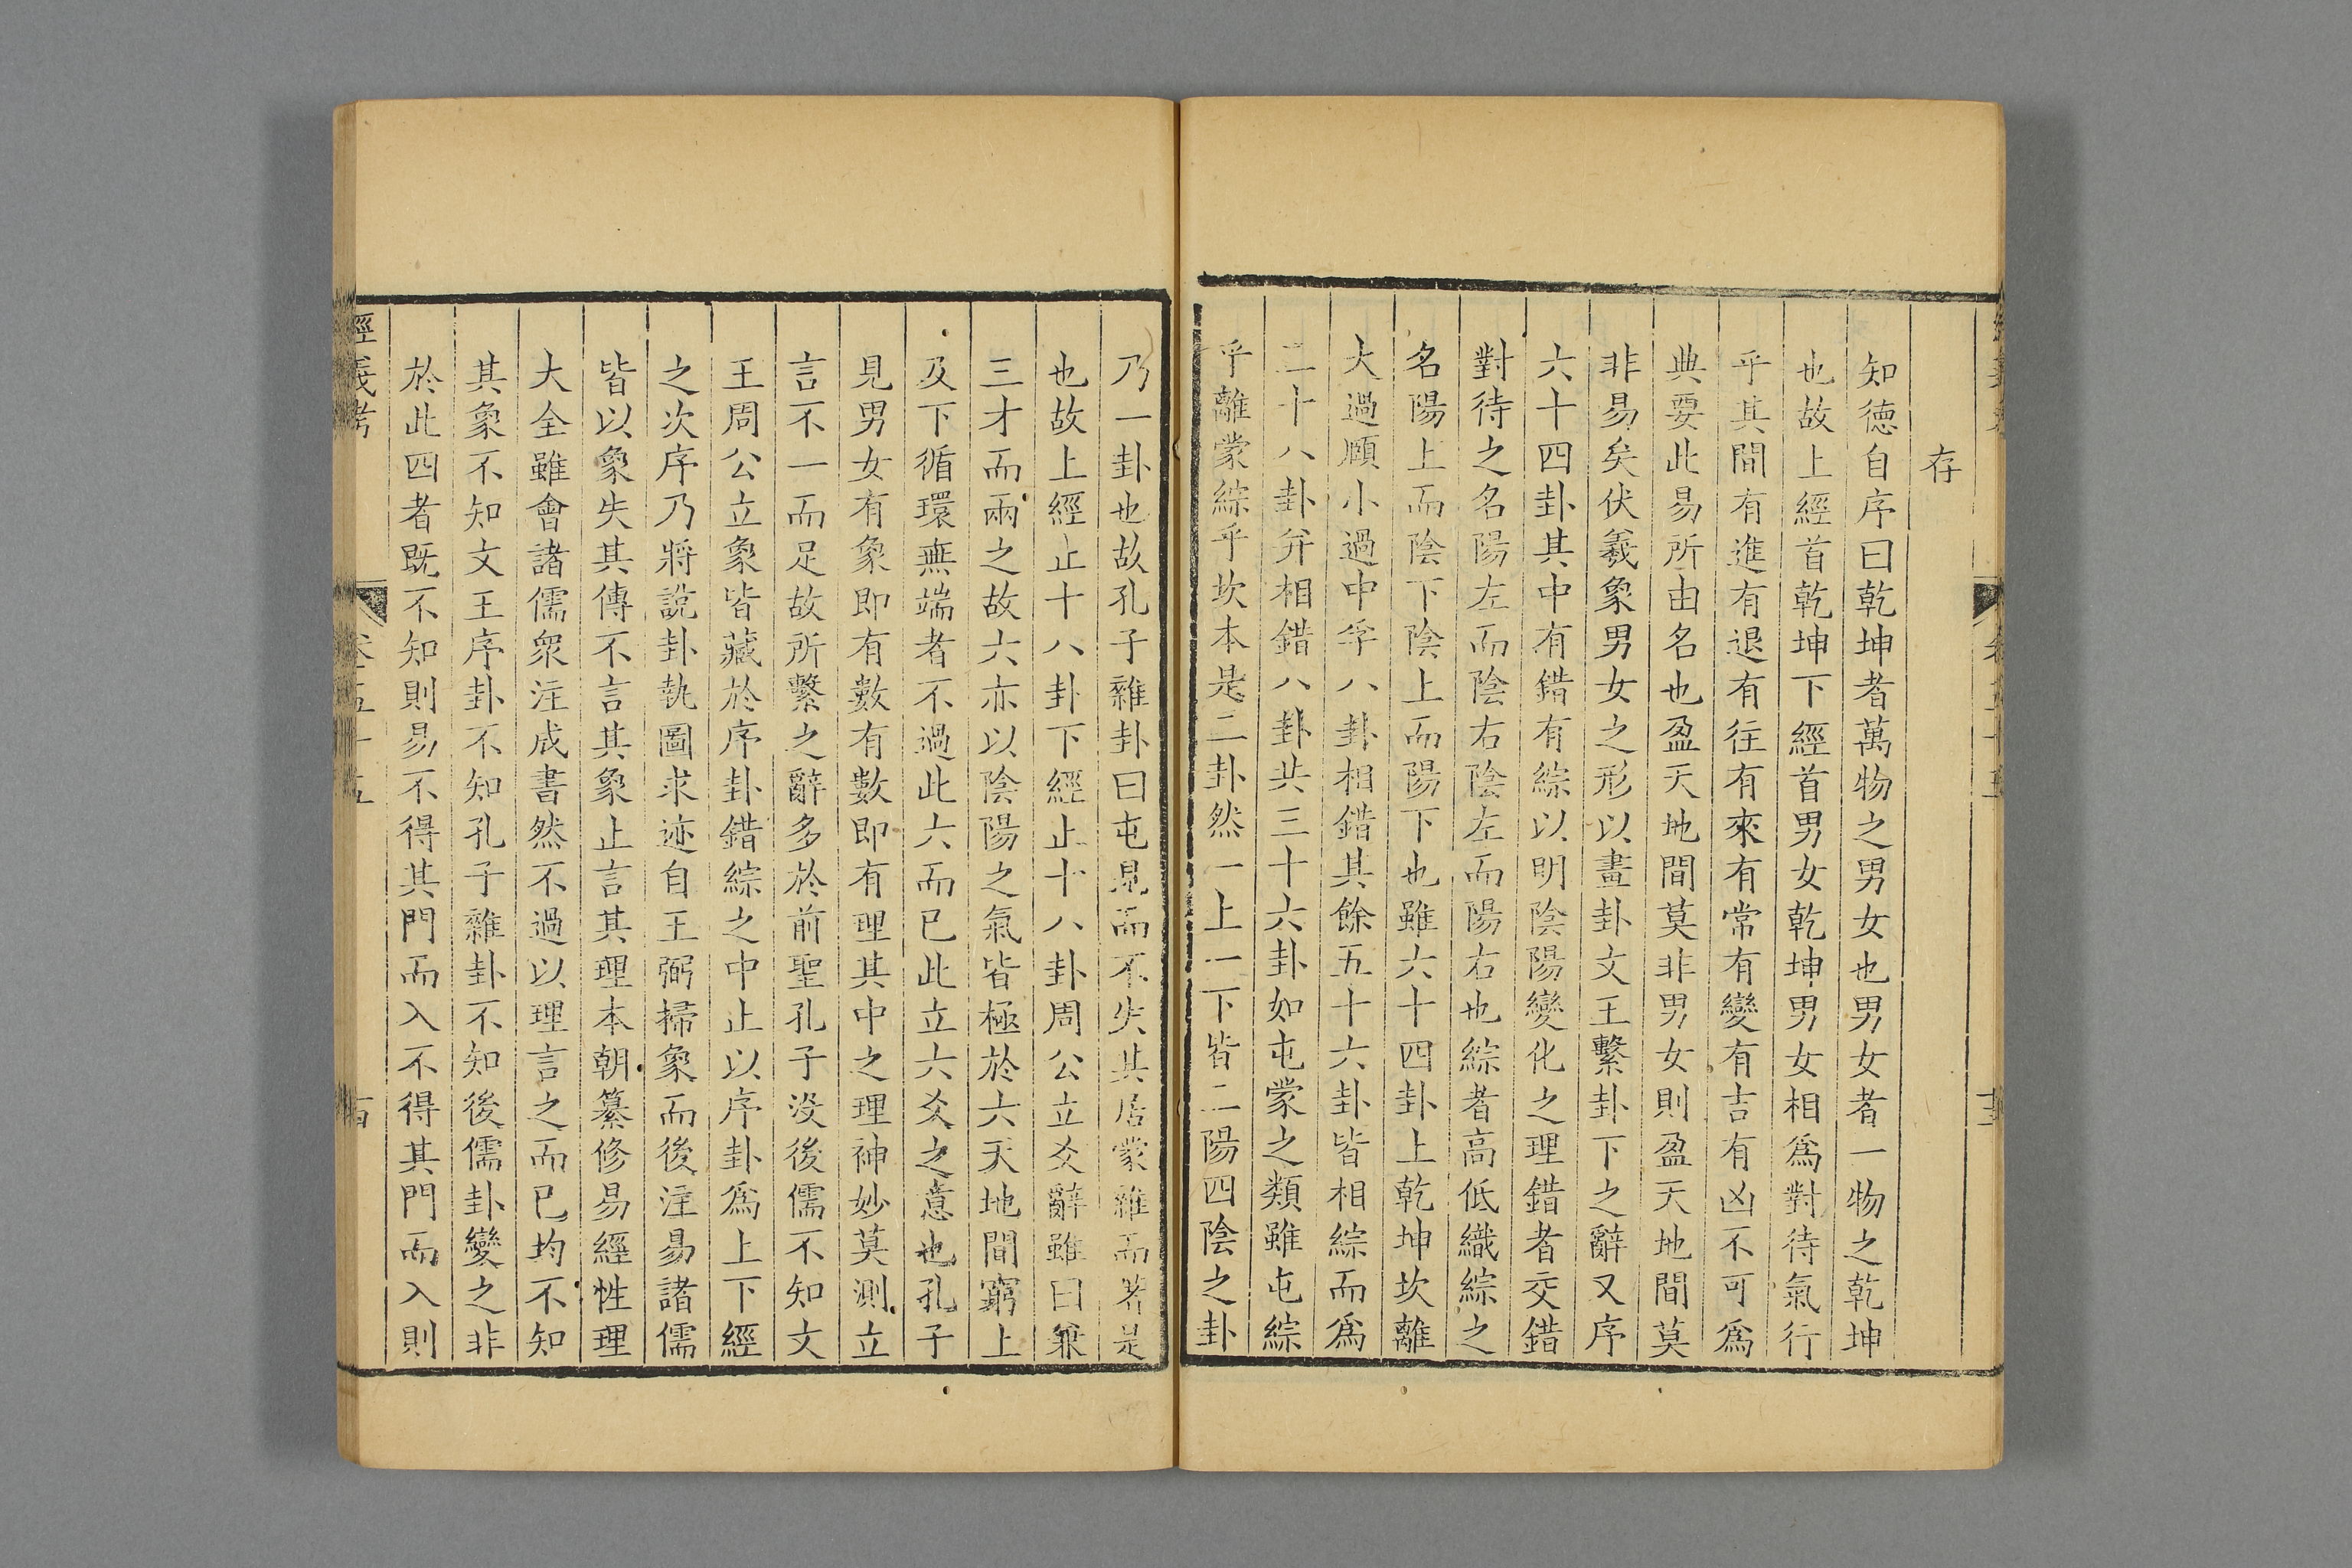 存
知徳自序曰乾坤者萬物之男女也男女者一物之乾坤
也故上經首乾坤下經首男女乾坤男女相爲對待氣行
乎其間有進有退有往有來有常有變有吉有凶不可爲
典要此易所由名也盈天地間莫非男女則盈天地間莫
非易矣伏羲象男女之形以畫卦文王繫卦下之辭又序
六十四卦其中有錯有綜以明陰陽變化之理錯者交錯
對待之名陽左而陰右陰左而陽右也綜者高低織綜之
名陽上而陰下陰上而陽下也雖六十四卦上乾坤坎離
大過頤小過中孚八卦相錯其餘五十六卦皆相綜而爲
二十八卦并相錯八卦共三十六卦如屯蒙之類雖屯綜
乎離蒙綜乎坎本是二卦然一上一下皆二陽四陰之卦
乃一卦也故孔子雜卦曰屯見而不失其居蒙雜而著是
也故上經止十八卦下經止十八卦周公立爻辭雖曰兼
三才而兩之故六亦以陰陽之氣皆極於六天地間窮上
及下循環無端者不過此六而已此立六爻之意也孔子
見男女有象即有數有數即有理其中之理神妙莫測立
言不一而足故所繫之辭多於前聖孔子没後儒不知文
王周公立象皆藏於序卦錯綜之中止以序卦爲上下經
之次序乃將說卦執圖求迹自王弼掃象而後注易諸儒
皆以象失其傳不言其象止言其理本朝纂修易經性理
大全雖會諸儒衆注成書然不過以理言之而已均不知
其象不知文王序卦不知孔子雜卦不知後儒卦變之非
於此四者既不知則易不得其門而入不得其門而入則
經義考
卷五十五